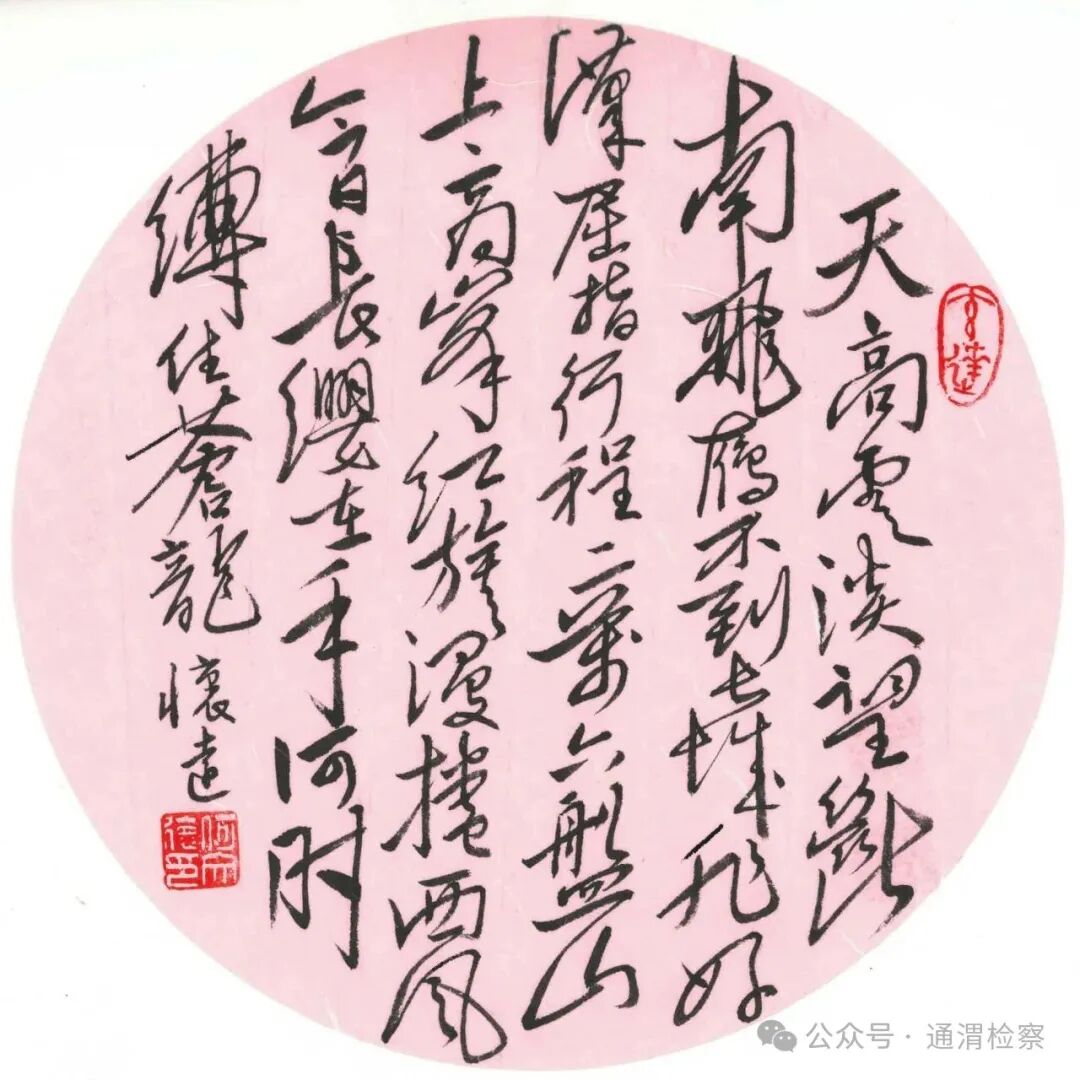 天高雲淡望斷
南飛雁不到長城非好
漢屈指行程二萬六盤山
上高峯紅旗漫捲西風
今日長纓在手何时
縛住蒼龍 懷遠
公众号 · 通渭检察